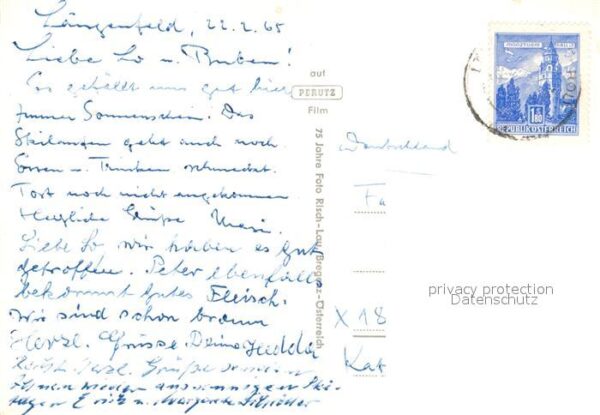 Längenfeld, 22.2.65
Liebe Lo u. Buben!
Es gefällt uns gut hier
Immer Sonnenschein. Das
Skilaufen geht auch noch.
Essen u. Trinken schmeckt.
Tort noch nicht angekommen
Herzliche Grüße
Liebe Lo, wir haben es gut
getroffen. Peter ebenfalls
bekommt gutes Fleisch.
Wir sind schon braun
Herzl. Grüsse. Deine Hedda
Herzl. Grüße
Ski-
tagen Erich u. Margarete
auf
PERUTZ
Film
75 Jahre Foto Risch-Lau, Bregenz-Österreich
REPUBLIK ÖSTERREICH
1.80
Deutschland
Fa
X 18
Kat
privacy protection
Datenschutz